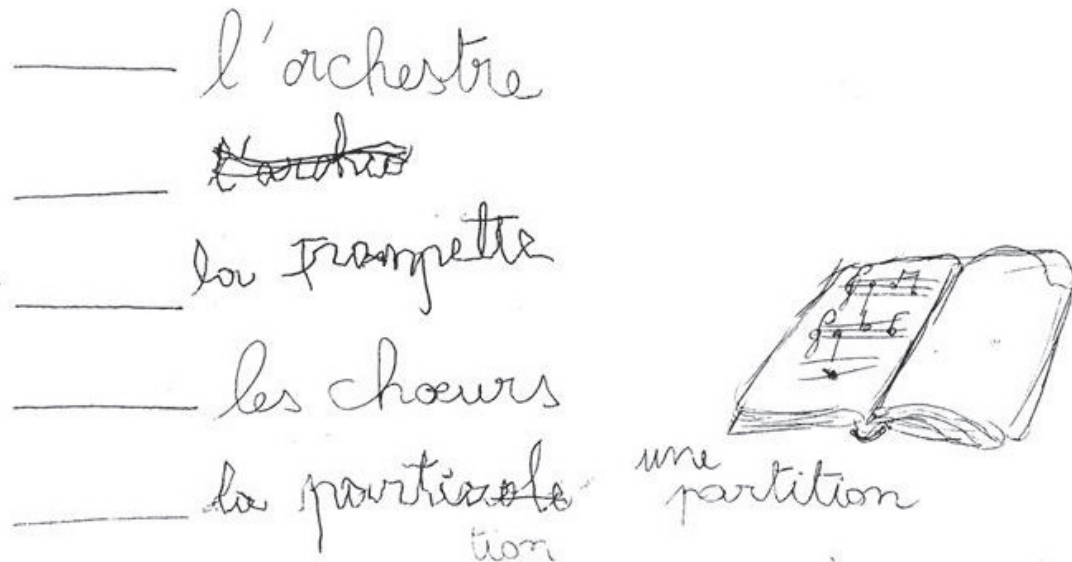 l'orchestre
la trompette
les chœurs
la
tion
une
partition